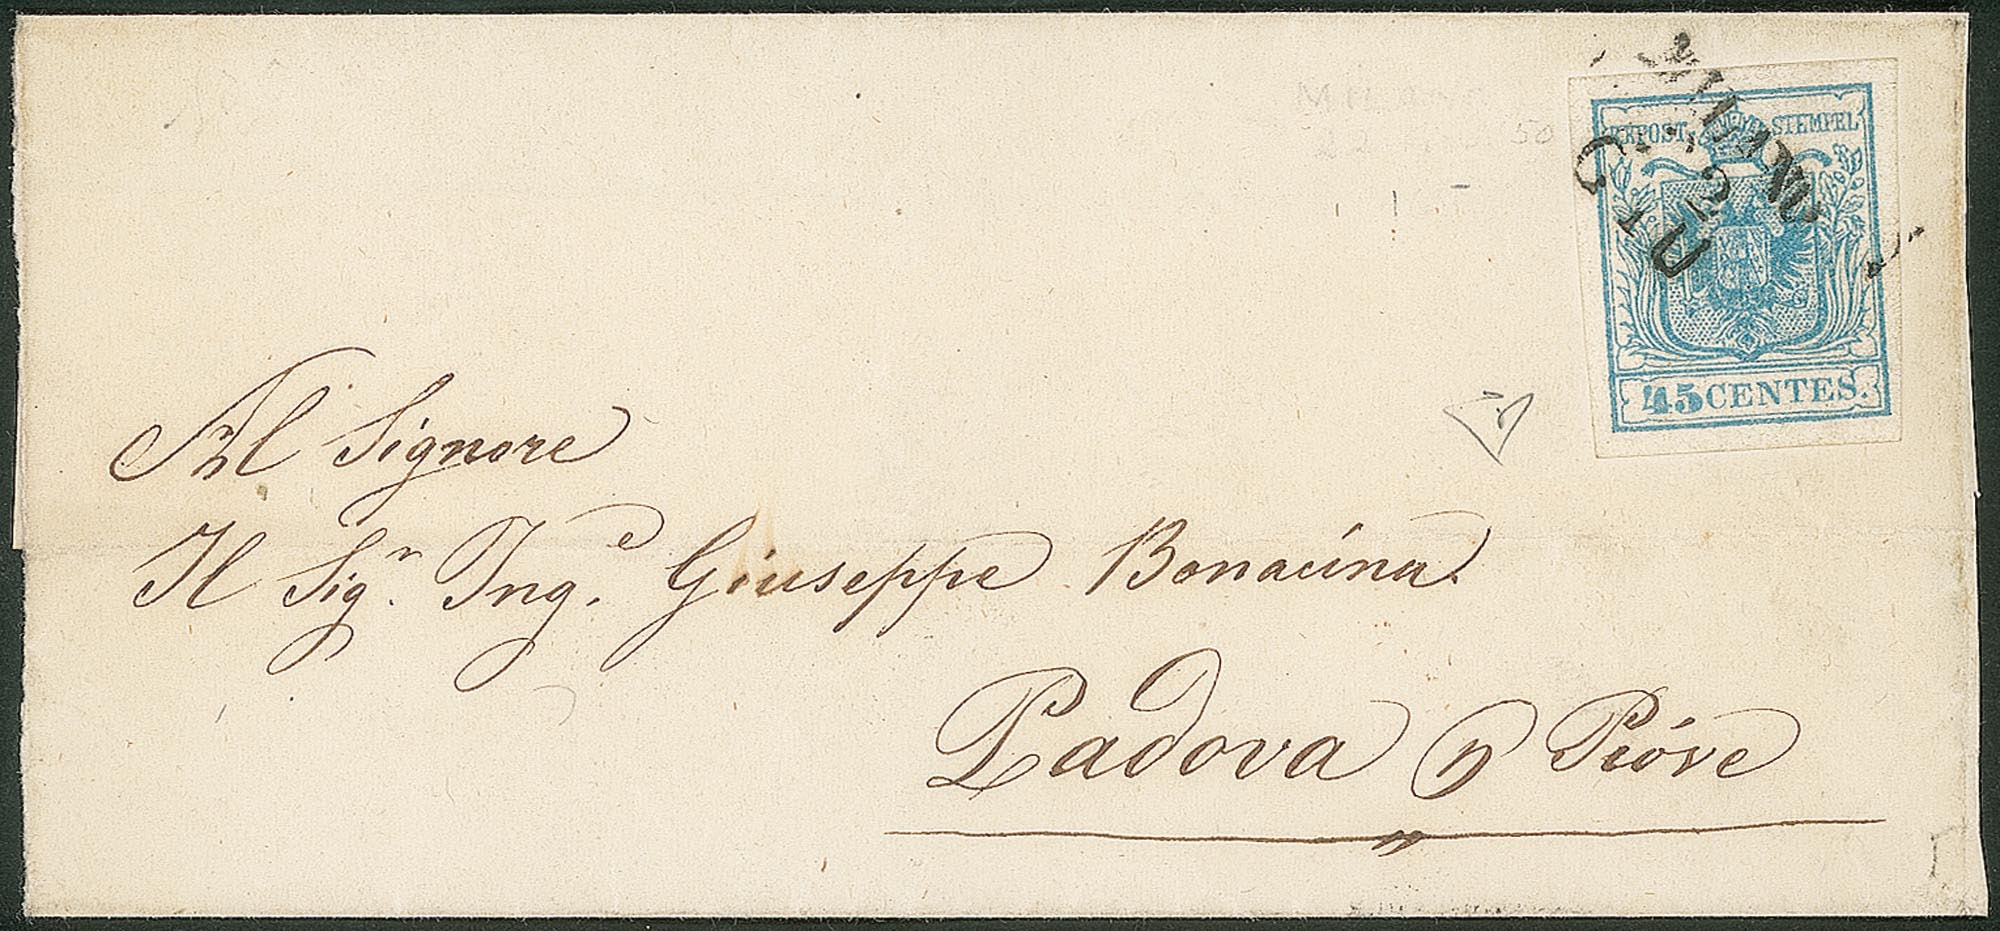 MILANO
KKPOST-STEMPEL
45 CENTES.
Al Signore
Il Sigr. Inge. Giuseppe Bonacina.
Padova p Pióve